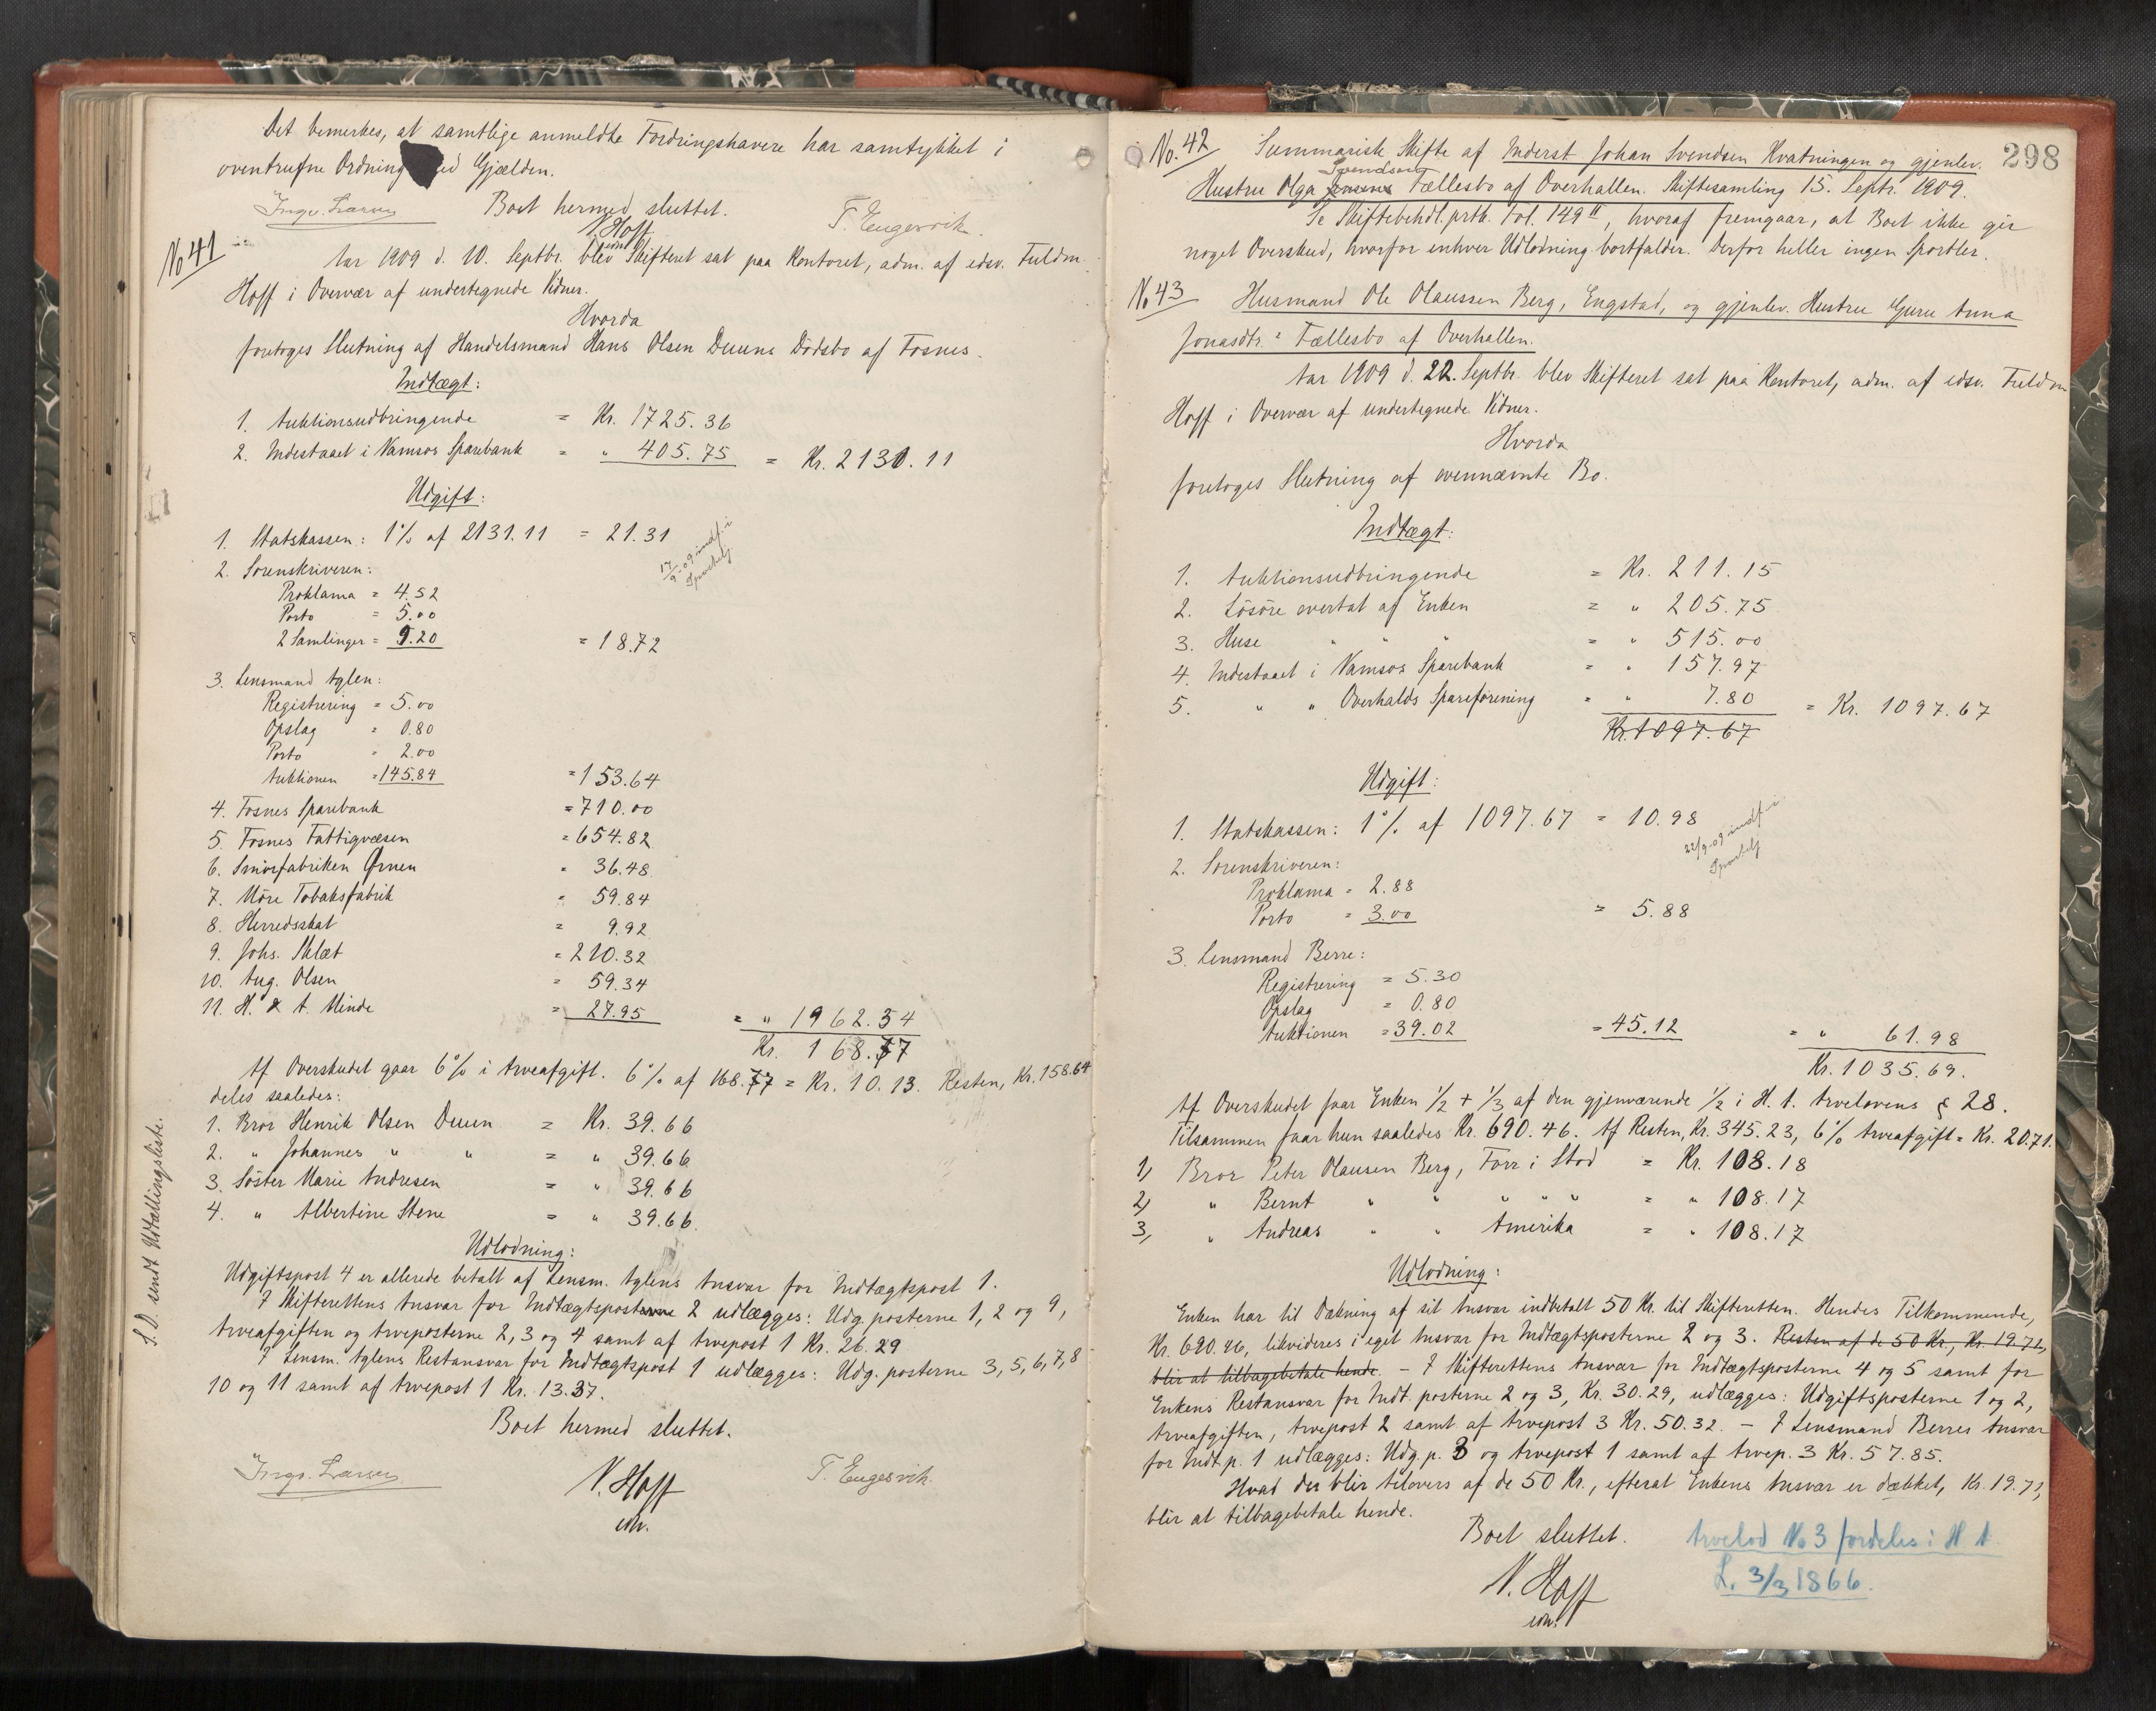 Det bemerkes, at samtlige anmeldte Fordringshavere har samtykket i
oventrufne Ordning ed Gjælden.
Boet hermed sluttet.
Ingv. Larsen N. Hoff edsv. T. Engesvik.
No 41
Aar 1909 d. 10. Septbr. blev Skifteret sat paa Kontoret, adm. af edsv. Fuldm.
Hoff i Overvær af undertegnede Vidner.
Hvorda
foretoges Slutning af Handelsmand Hans Olsen Duuns Dødsbo af Fosnes.
Indtægt:
1. Auktionsudbringende = Kr. 1725.36
2. Indestaaet i Namsos Sparebank = " 405.75 = Kr. 2131.11
Udgift:
1. Statskassen: 1% af 2131.11 = 21.31
17/9-09 indf. i
Sportelj
2. Sorenskriveren:
Proklama = 4.52
Porto = 5.00
2 Samlinger = 9.20 = 18.72
3. Lensmand Aglen:
Registrering = 5.00
Opslag = 0.80
Porto = 2.00
Auktionen = 145.84 = 153.64
4. Fosnes Sparebank = 710.00
5. Fosnes Fattigvæsen = 654.82
6. Smørfabriken Ørnen = 36.48
7. Møre Tobaksfabrik = 59.84
8. Herredsskat = 9.92
9. Johs. Sklæt = 210.32
10. Aug. Olsen = 59.34
11. H. & A. Minde = 27.95 = " 1962.34
Kr. 168.77
Af Overskudet gaar 6% i Arveafgift. 6% af 168.77 = Kr. 10.13. Resten, Kr. 158.64
deles saaledes:
1. Bror Henrik Olsen Duun = Kr. 39.66
2. " Johannes " " = " 39.66
3. Søster Marie Andresen = " 39.66
4. " Albertine Stene = " 39.66.
Udlodning:
Udgiftspost 4 er allerede betalt af Lensm. Aglens Ansvar for Indtægtspost 1.
I Skifterettens Ansvar for Indtægtsposterne 2 udlægges: Udg. posterne 1, 2 og 9,
Arveafgiften og Arveposterne 2, 3 og 4 samt af Arvepost 1 Kr. 26.29
I Lensm. Aglens Restansvar for Indtægtspost 1 udlægges: Udg. posterne 3, 5, 6, 7, 8
10 og 11 samt af Arvepost 1 Kr. 13.37.
Boet hermed sluttet.
Ingv. Larsen N. Hoff T. Engesvik.
edsv.
S.D. sendt Udtællingsliste.
298
No. 42 Summarisk Skifte af Inderst Johan Svendsen Kvatningen og gjenlev.
Svendsens
Hustru Olga Jensens Fællesbo af Overhallen. Skiftesamling 15. Septr. 1909.
Se Skiftebehdl. prtk. Fol. 149 II, hvoraf fremgaar, at Boet ikke gir
noget Overskud, hvorfor enhver Udlodning bortfalder. Derfor heller ingen Sportler.
No 43 Husmand Ole Olaussen Berg, Engstad, og gjenlev. Hustru Guru Anna
Jonasdtr.s Fællesbo af Overhallen.
Aar 1909 d. 22. Septbr. blev Skifteret sat paa Kontoret, adm. af edsv. Fuldm
Hoff i Overvær af undertegnede Vidner.
Hvorda
foretoges Slutning af ovennævnte Bo.
Indtægt:
1. Auktionsudbringende = Kr. 211.15
2. Løsøre overtat af Enken = " 205.75
3. Huse " " " = " 515.00
4. Indestaaet i Namsos Sparebank = " 157.97
5. " " Overhalds Spareforening = " 7.80 = Kr. 1097.67
Kr. 1097.67
Udgift:
1. Statskassen: 1% af 1097.67 = 10.98
22/9-09 indf. i
Sportelj
2. Sorenskriveren:
Proklama = 2.88
Porto = 3.00 = 5.88
3. Lensmand Berre:
Registrering = 5.30
Opslag = 0.80
Auktionen = 39.02 = 45.12 = " 61.98
Kr. 1035.69.
Af Overskudet faar Enken 1/2 + 1/3 af den gjenværende 1/2 i H. t. Arvelovens § 28.
Tilsammen faar hun saaledes Kr. 690.46. Af Resten, Kr. 345.23, 6% Arveafgift = Kr. 20.71.
1) Bror Peter Olausen Berg, Forr i Stod = Kr. 108.18
2) " Bernt " " " " " = " 108.17
3, " Andreas " " Amerika = " 108.17
Udlodning:
Enken har til Dækning af sit Ansvar indbetalt 50 Kr. til Skifteretten. Hendes Tilkommende,
Kr. 690.46, likvideres i eget Ansvar for Indtægtsposterne 2 og 3. Resten af de 50 Kr., Kr. 19.71,
blir at tilbagebetale hende. - I Skifterettens Ansvar for Indtægtsposterne 4 og 5 samt for
Enkens Restansvar for Indt. posterne 2 og 3, Kr. 30.29, udlægges: Udgiftsposterne 1 og 2,
Arveafgiften, Arvepost 2 samt af Arvepost 3 Kr. 50.32. - I Lensmand Berres Ansvar
for Indt p. 1 udlægges: Udg. p. 3 og Arvepost 1 samt af Arvep. 3 Kr. 57.85.
Hvad der blir tilovers af de 50 Kr., efterat Enkens Ansvar er dækket, Kr. 19.71,
blir at tilbagebetale hende.
Boet sluttet.
N. Hoff
edsv.
Arvelod No 3 fordeles i H t
L. 3/3 1866.